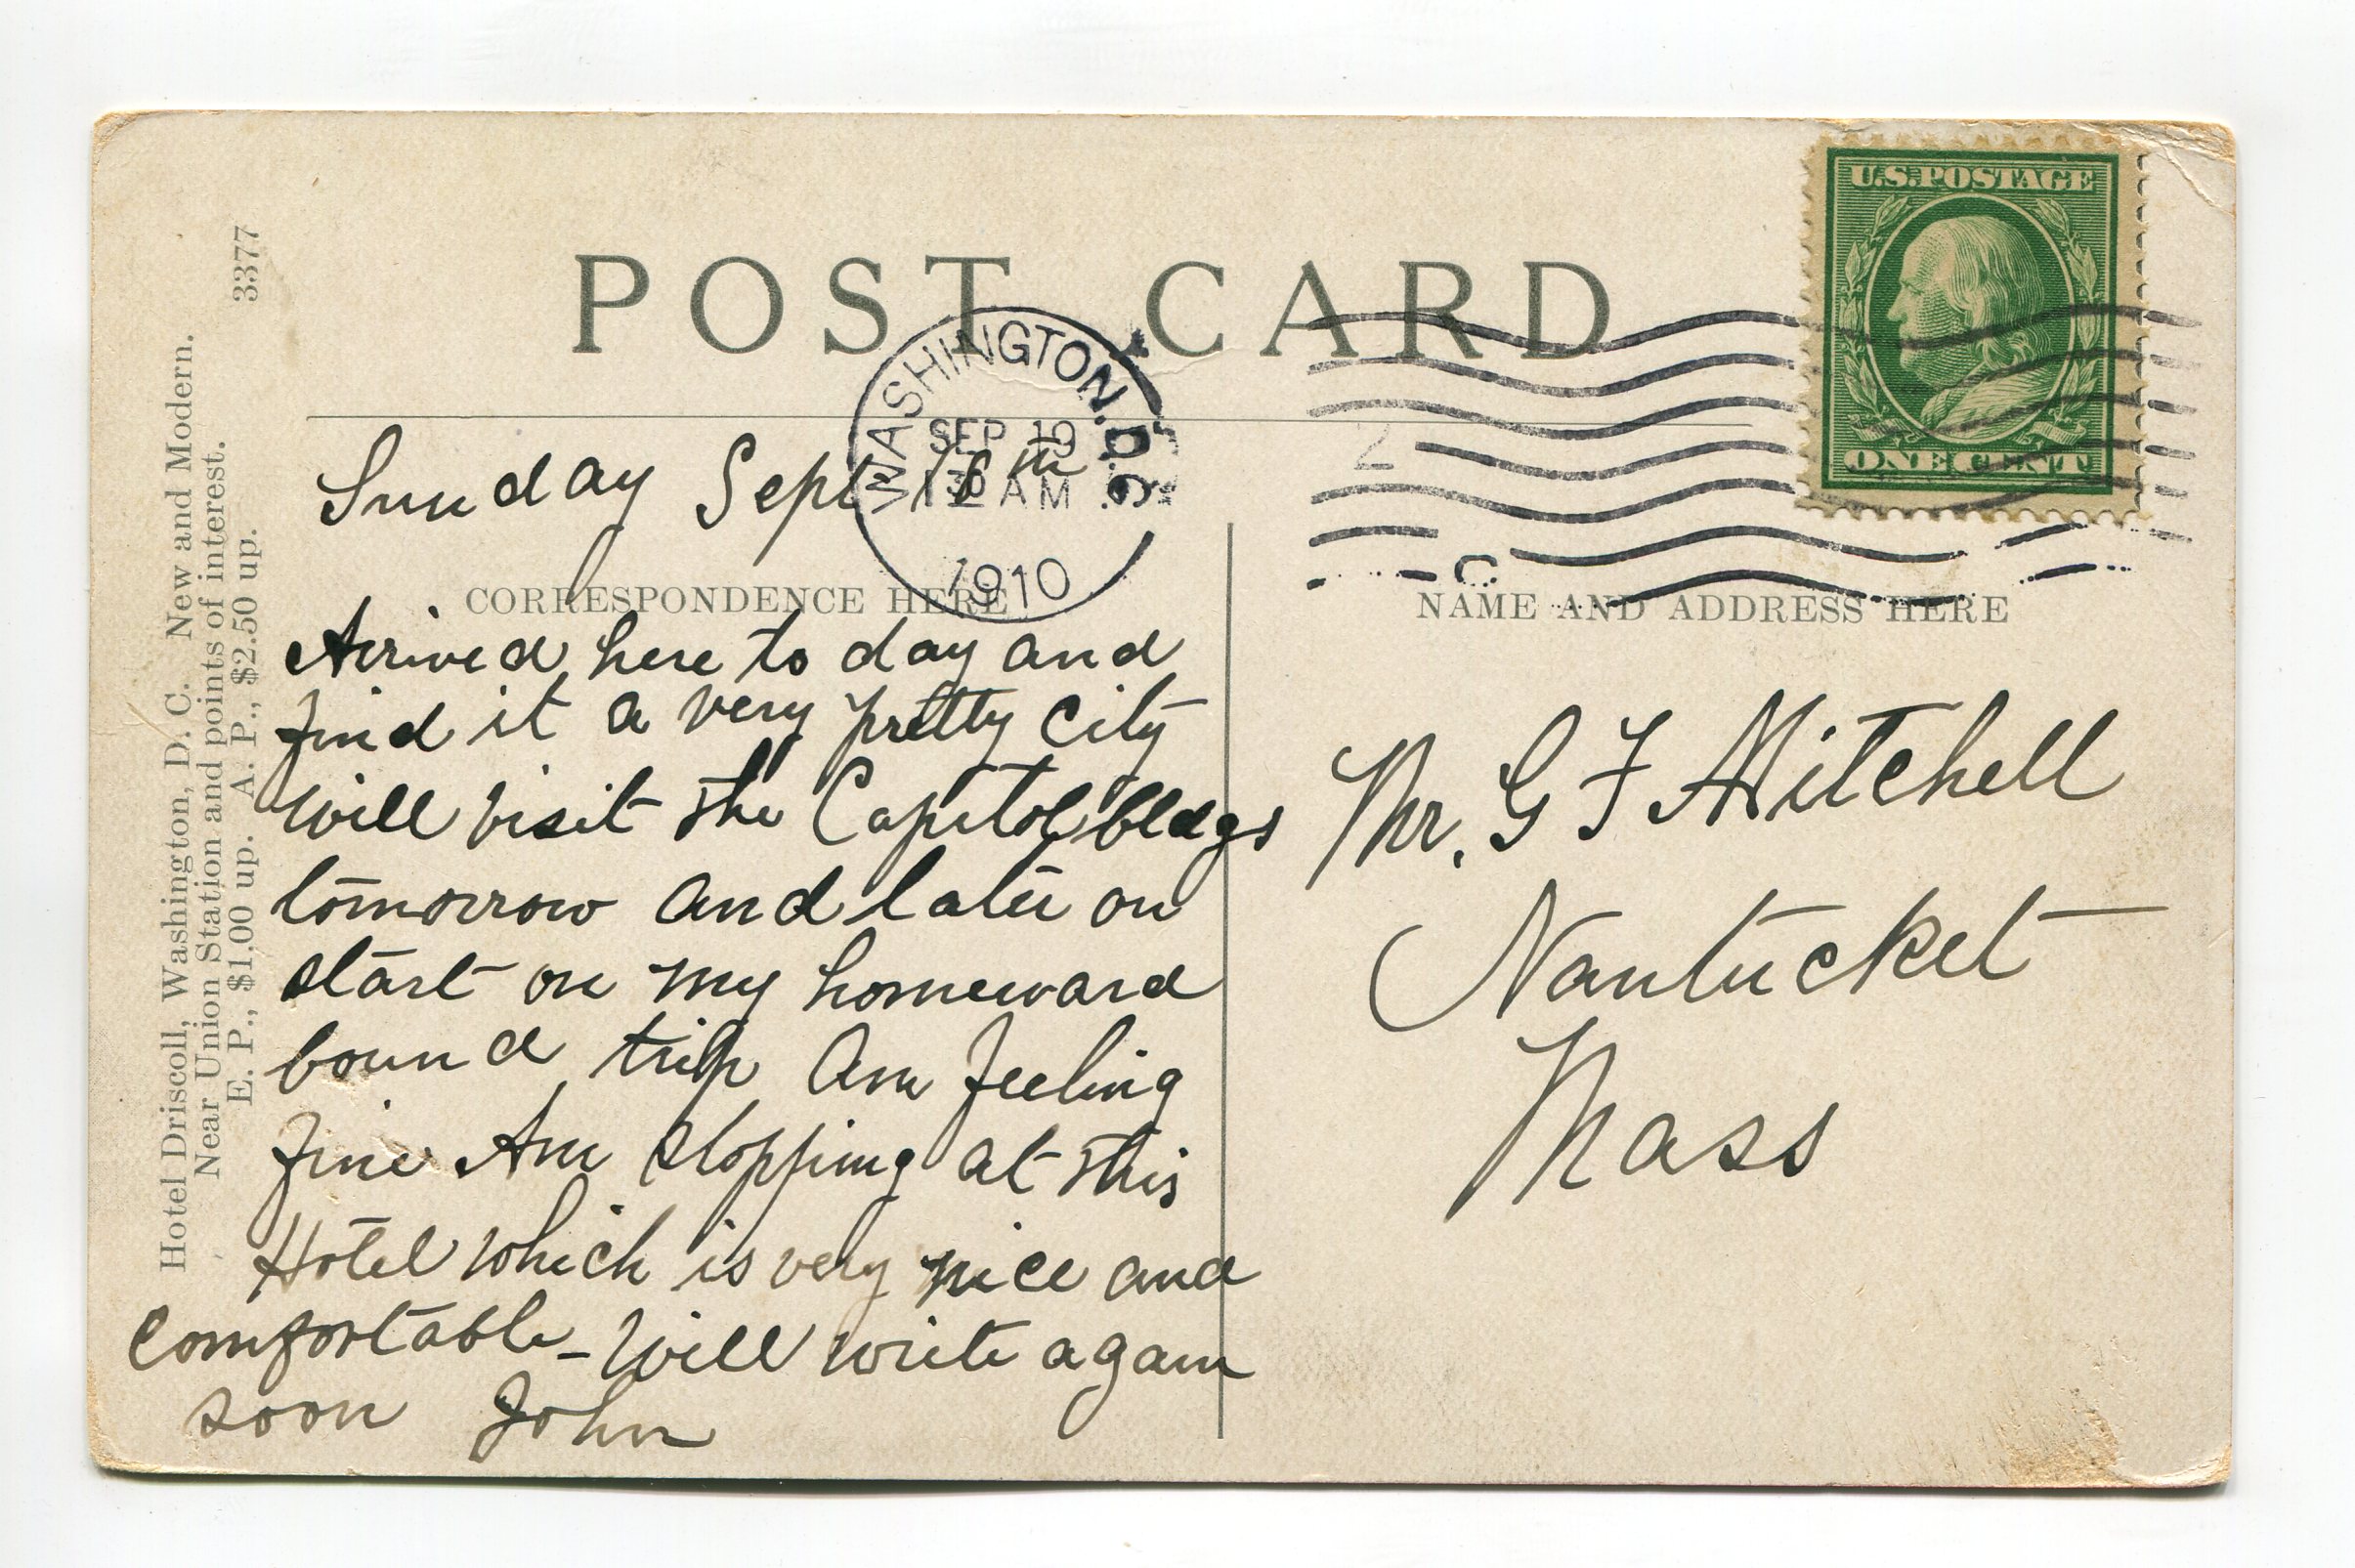 Hotel Driscoll, Washington, D. C. New and Modern.
Near Union Station and points of interest.
E. P., $1.00 up. A. P., $2.50 up.
3377
POST CARD
U.S. POSTAGE
ONE CENT
WASHINGTON, D.C.
SEP 19
AM
1910
2
Sunday Sept 18th
CORRESPONDENCE HERE
Arrived here to day and
find it a very pretty City
Will visit the Capitol bldgs
tomorrow and later on
start on my homeward
bound trip Am feeling
fine Am stopping at this
Hotel which is very nice and
Comfortable - Will write again
soon John
NAME AND ADDRESS HERE
Mr. G F Mitchell
Nantucket
Mass